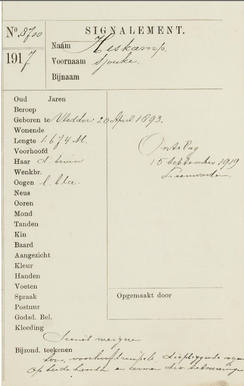 No. 8700
SIGNALEMENT.
1917
Naam Heskamp
Voornaam Sjouke
Bijnaam
Oud Jaren
Beroep
Geboren te Vledder 20 April 1893.
Wonende
Lengte 1.674 M.
Voorhoofd
Haar d. bruin
Wenkbr.
Oogen
Neus
Ooren
Mond
Tanden
Kin
Baard
Aangezicht
Kleur
Handen
Voeten
Spraak
Postuur
Godsd. Bel.
Kleeding
Ontslag
15 September 1919
Leeuwarden
Opgemaakt door
Bijzond. teekenen
op beide handen en